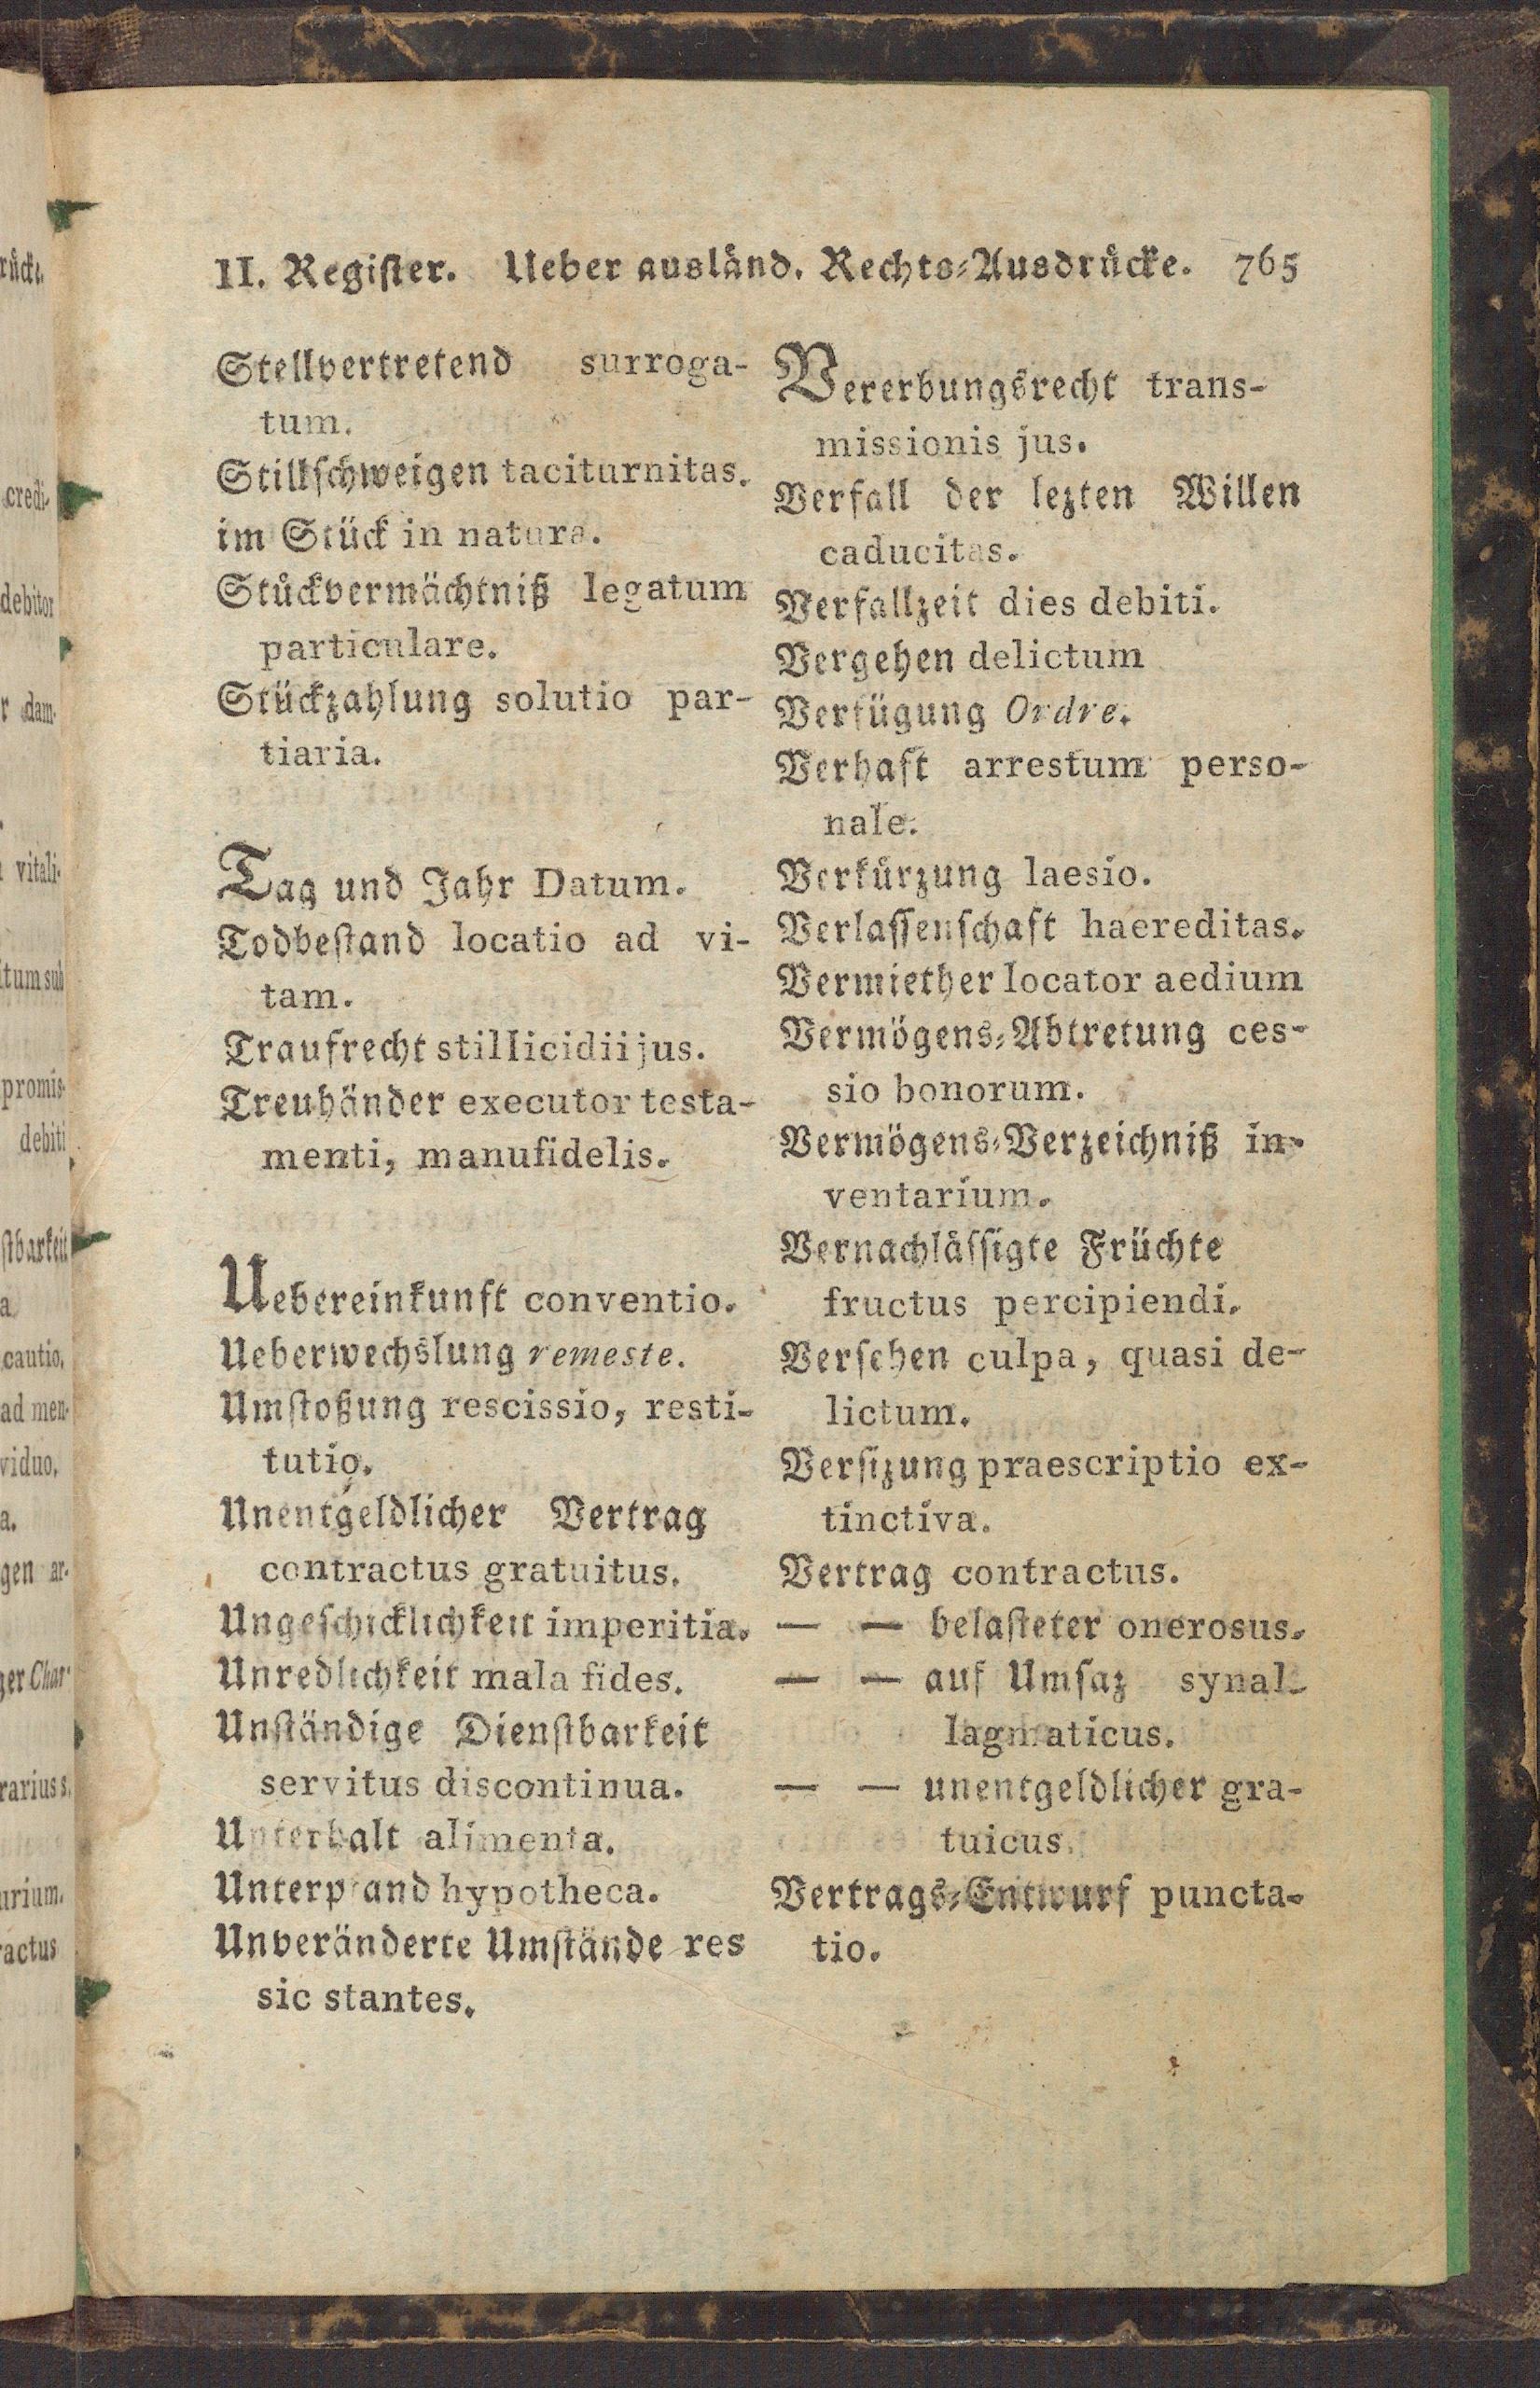 II. Register. Ueber ausländ. Rechts-Ausdrücke. 765
Stellvertretend surroga-
tum.
Stillschweigen taciturnitas.
im Stück in natura.
Stückvermächtniß legatum
particulare.
Stückzahlung solutio par-
tiaria.
Tag und Jahr Datum.
Todbestand locatio ad vi-
tam.
Traufrecht stillicidii jus.
Treuhänder executor testa-
menti, manufidelis.
Uebereinkunft conventio.
Ueberwechslung remeste.
Umstoßung rescissio, resti-
tutio.
Unentgeldlicher Vertrag
contractus gratuitus.
Ungeschicklichkeit imperitia.
Unredlichkeit mala fides.
Unständige Dienstbarkeit
servitus discontinua.
Unterhalt alimenta.
Unterpfand hypotheca.
Unveränderte Umstände res
sic stantes.
Vererbungsrecht trans-
missionis jus.
Verfall der lezten Willen
caducitas.
Verfallzeit dies debiti.
Vergehen delictum
Verfügung Ordre.
Verhaft arrestum perso-
nale.
Verkürzung laesio.
Verlassenschaft haereditas.
Vermiether locator aedium
Vermögens-Abtretung ces-
sio bonorum.
Vermögens-Verzeichniß in-
ventarium.
Vernachlässigte Früchte
fructus percipiendi.
Versehen culpa, quasi de-
lictum.
Versizung praescriptio ex-
tinctiva.
Vertrag contractus.
— — belasteter onerosus.
— — auf Umsaz synal-
lagmaticus.
— — unentgeldlicher gra-
tuicus.
Vertrags-Entwurf puncta-
tio.